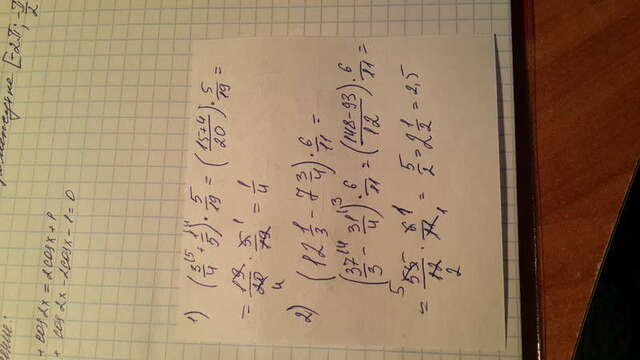 ение:
промежутке [-2π; -π/2
+ cos2x = 2cosx + 1
+ cos2x - 2cosx - 1 = 0
1) (3/4^(5 + 1/5^(4) · 5/19 = ((15+4)/20) · 5/19 =
= 19/20 · 5/19 = 1/4
4 1
2) (12 1/3 - 7 3/4) · 6/11 =
(37/3^(4 - 31/4^(3) · 6/11 = ((148-93)/12) · 6/11 =
= 55/12 · 6/11 = 5/2 = 2 1/2 = 2,5
5 2 1 1